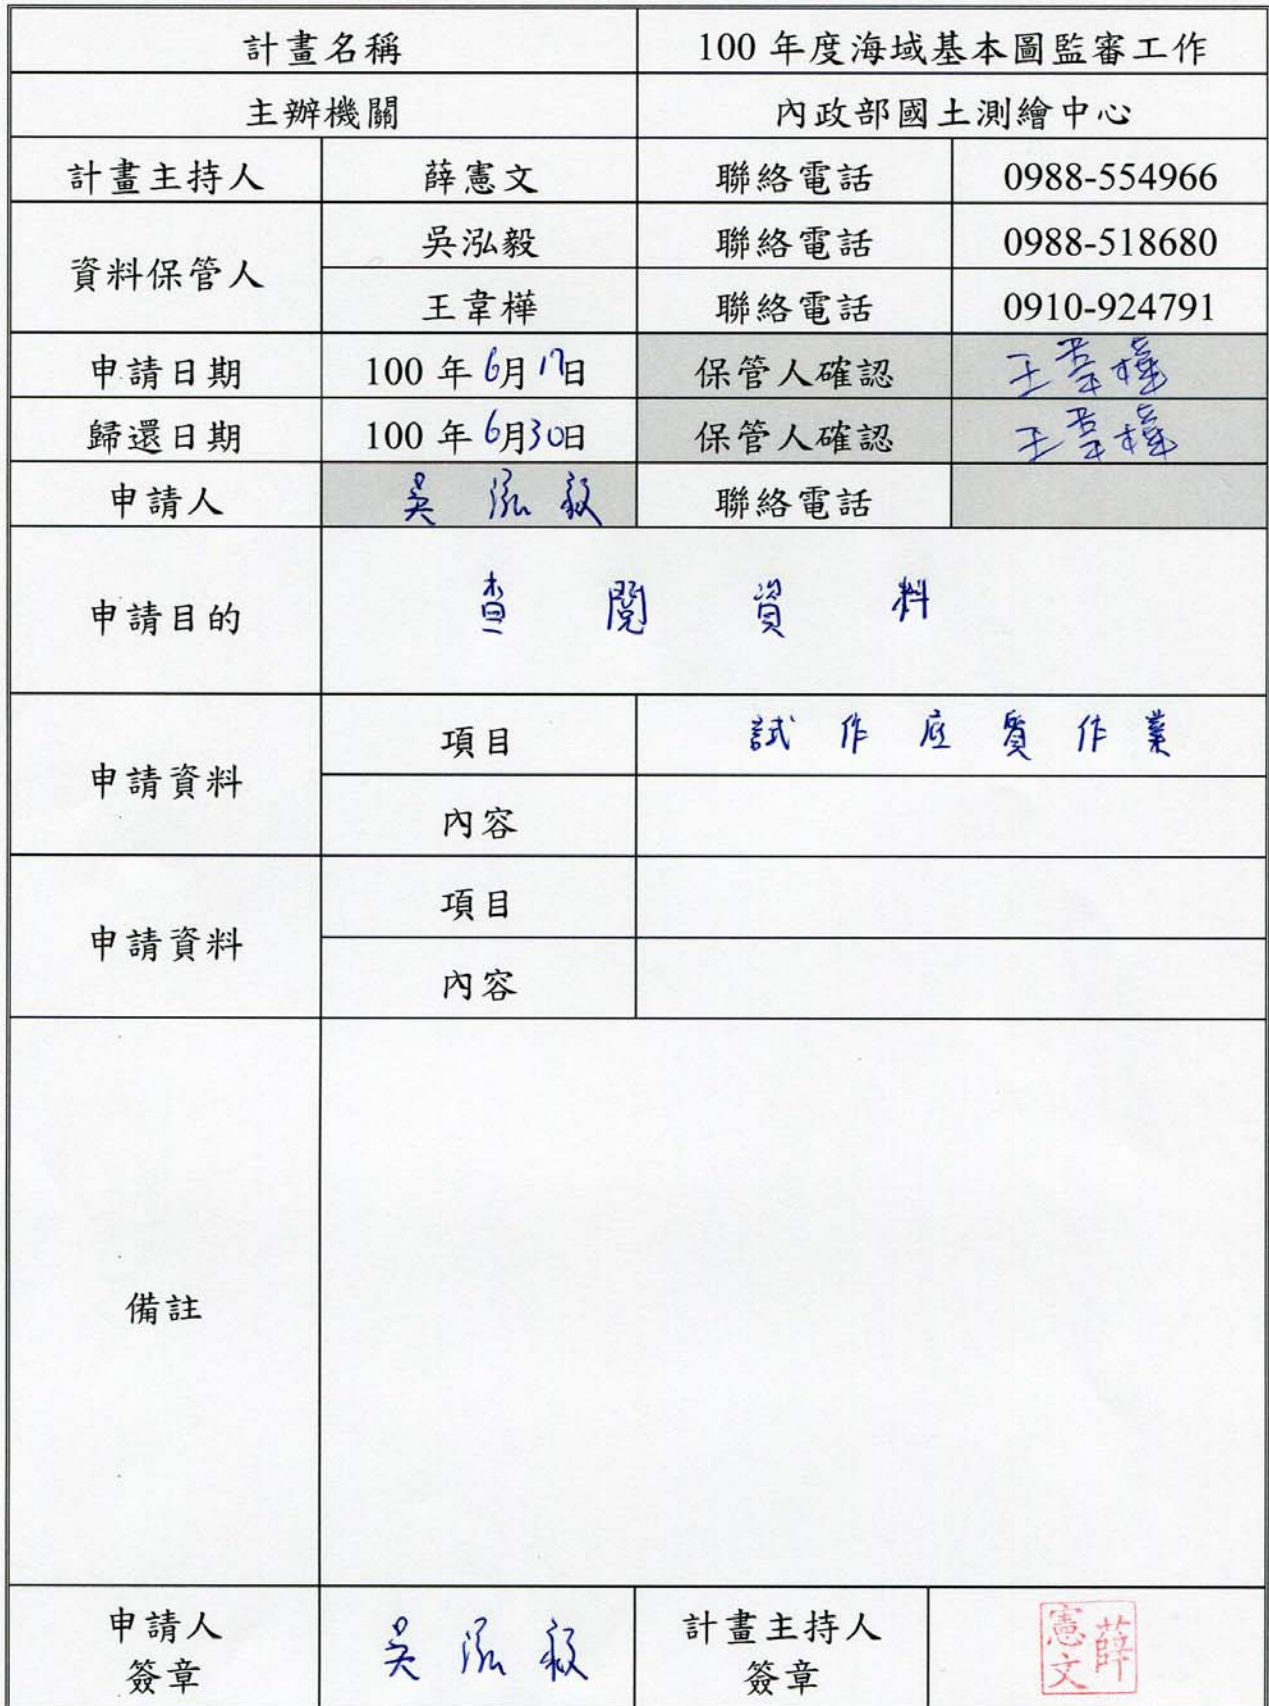 計畫名稱 100 年度海域基本圖監審工作
主辦機關 內政部國土測繪中心
計畫主持人 薛憲文 聯絡電話 0988-554966
資料保管人 吳泓毅 聯絡電話 0988-518680
王韋樺 聯絡電話 0910-924791
申請日期 100 年 6月 17日 保管人確認 王韋樺
歸還日期 100 年 6月30日 保管人確認 王韋樺
申請人 吳泓毅 聯絡電話
申請目的 查閱資料
申請資料 項目 試作底質作業
內容
申請資料 項目
內容
備註
申請人 簽章 吳泓毅 計畫主持人 簽章 薛憲文